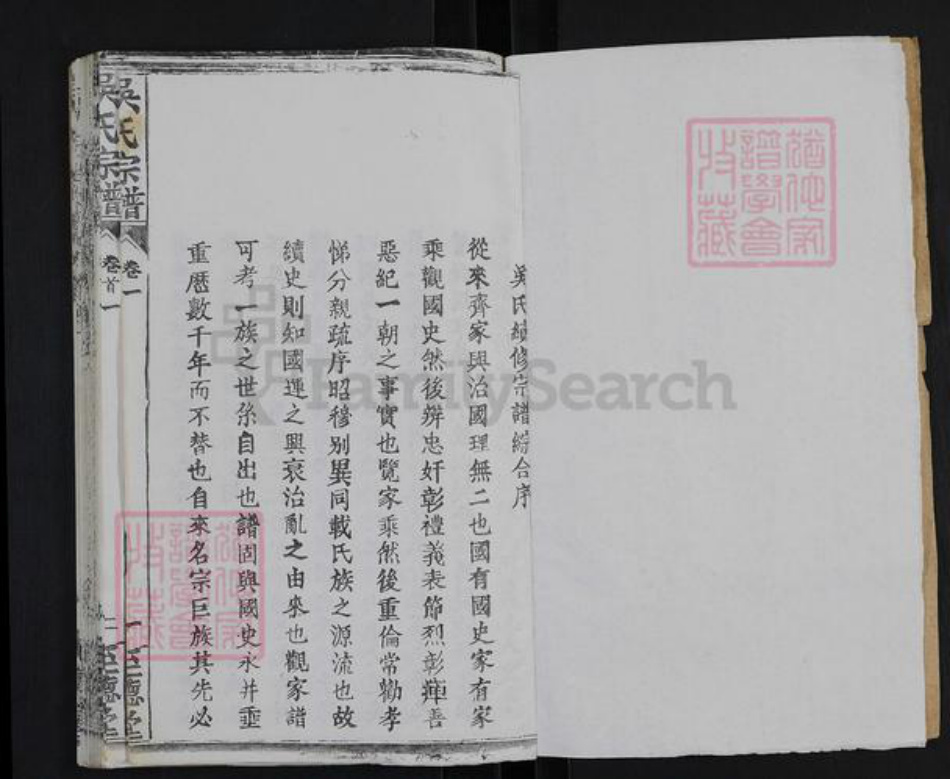 吳氏續修宗譜綜合序
從來齊家與治國理無二也國有國史家有家
乘觀國史然後辨忠奸彰禮義表節烈彰癉善
惡紀一朝之事實也覽家乘然後重倫常勸孝
悌分親疏序昭穆別異同載氏族之源流也故
續史則知國運之興衰治亂之由來也觀家譜
可考一族之世系自出也譜固與國史永并垂
重歷數千年而不替也自來名宗巨族其先必
吳氏宗譜
卷一
一
至德堂
吳氏宗譜
卷首一
二
至德堂
FamilySearch
譜學會
收藏